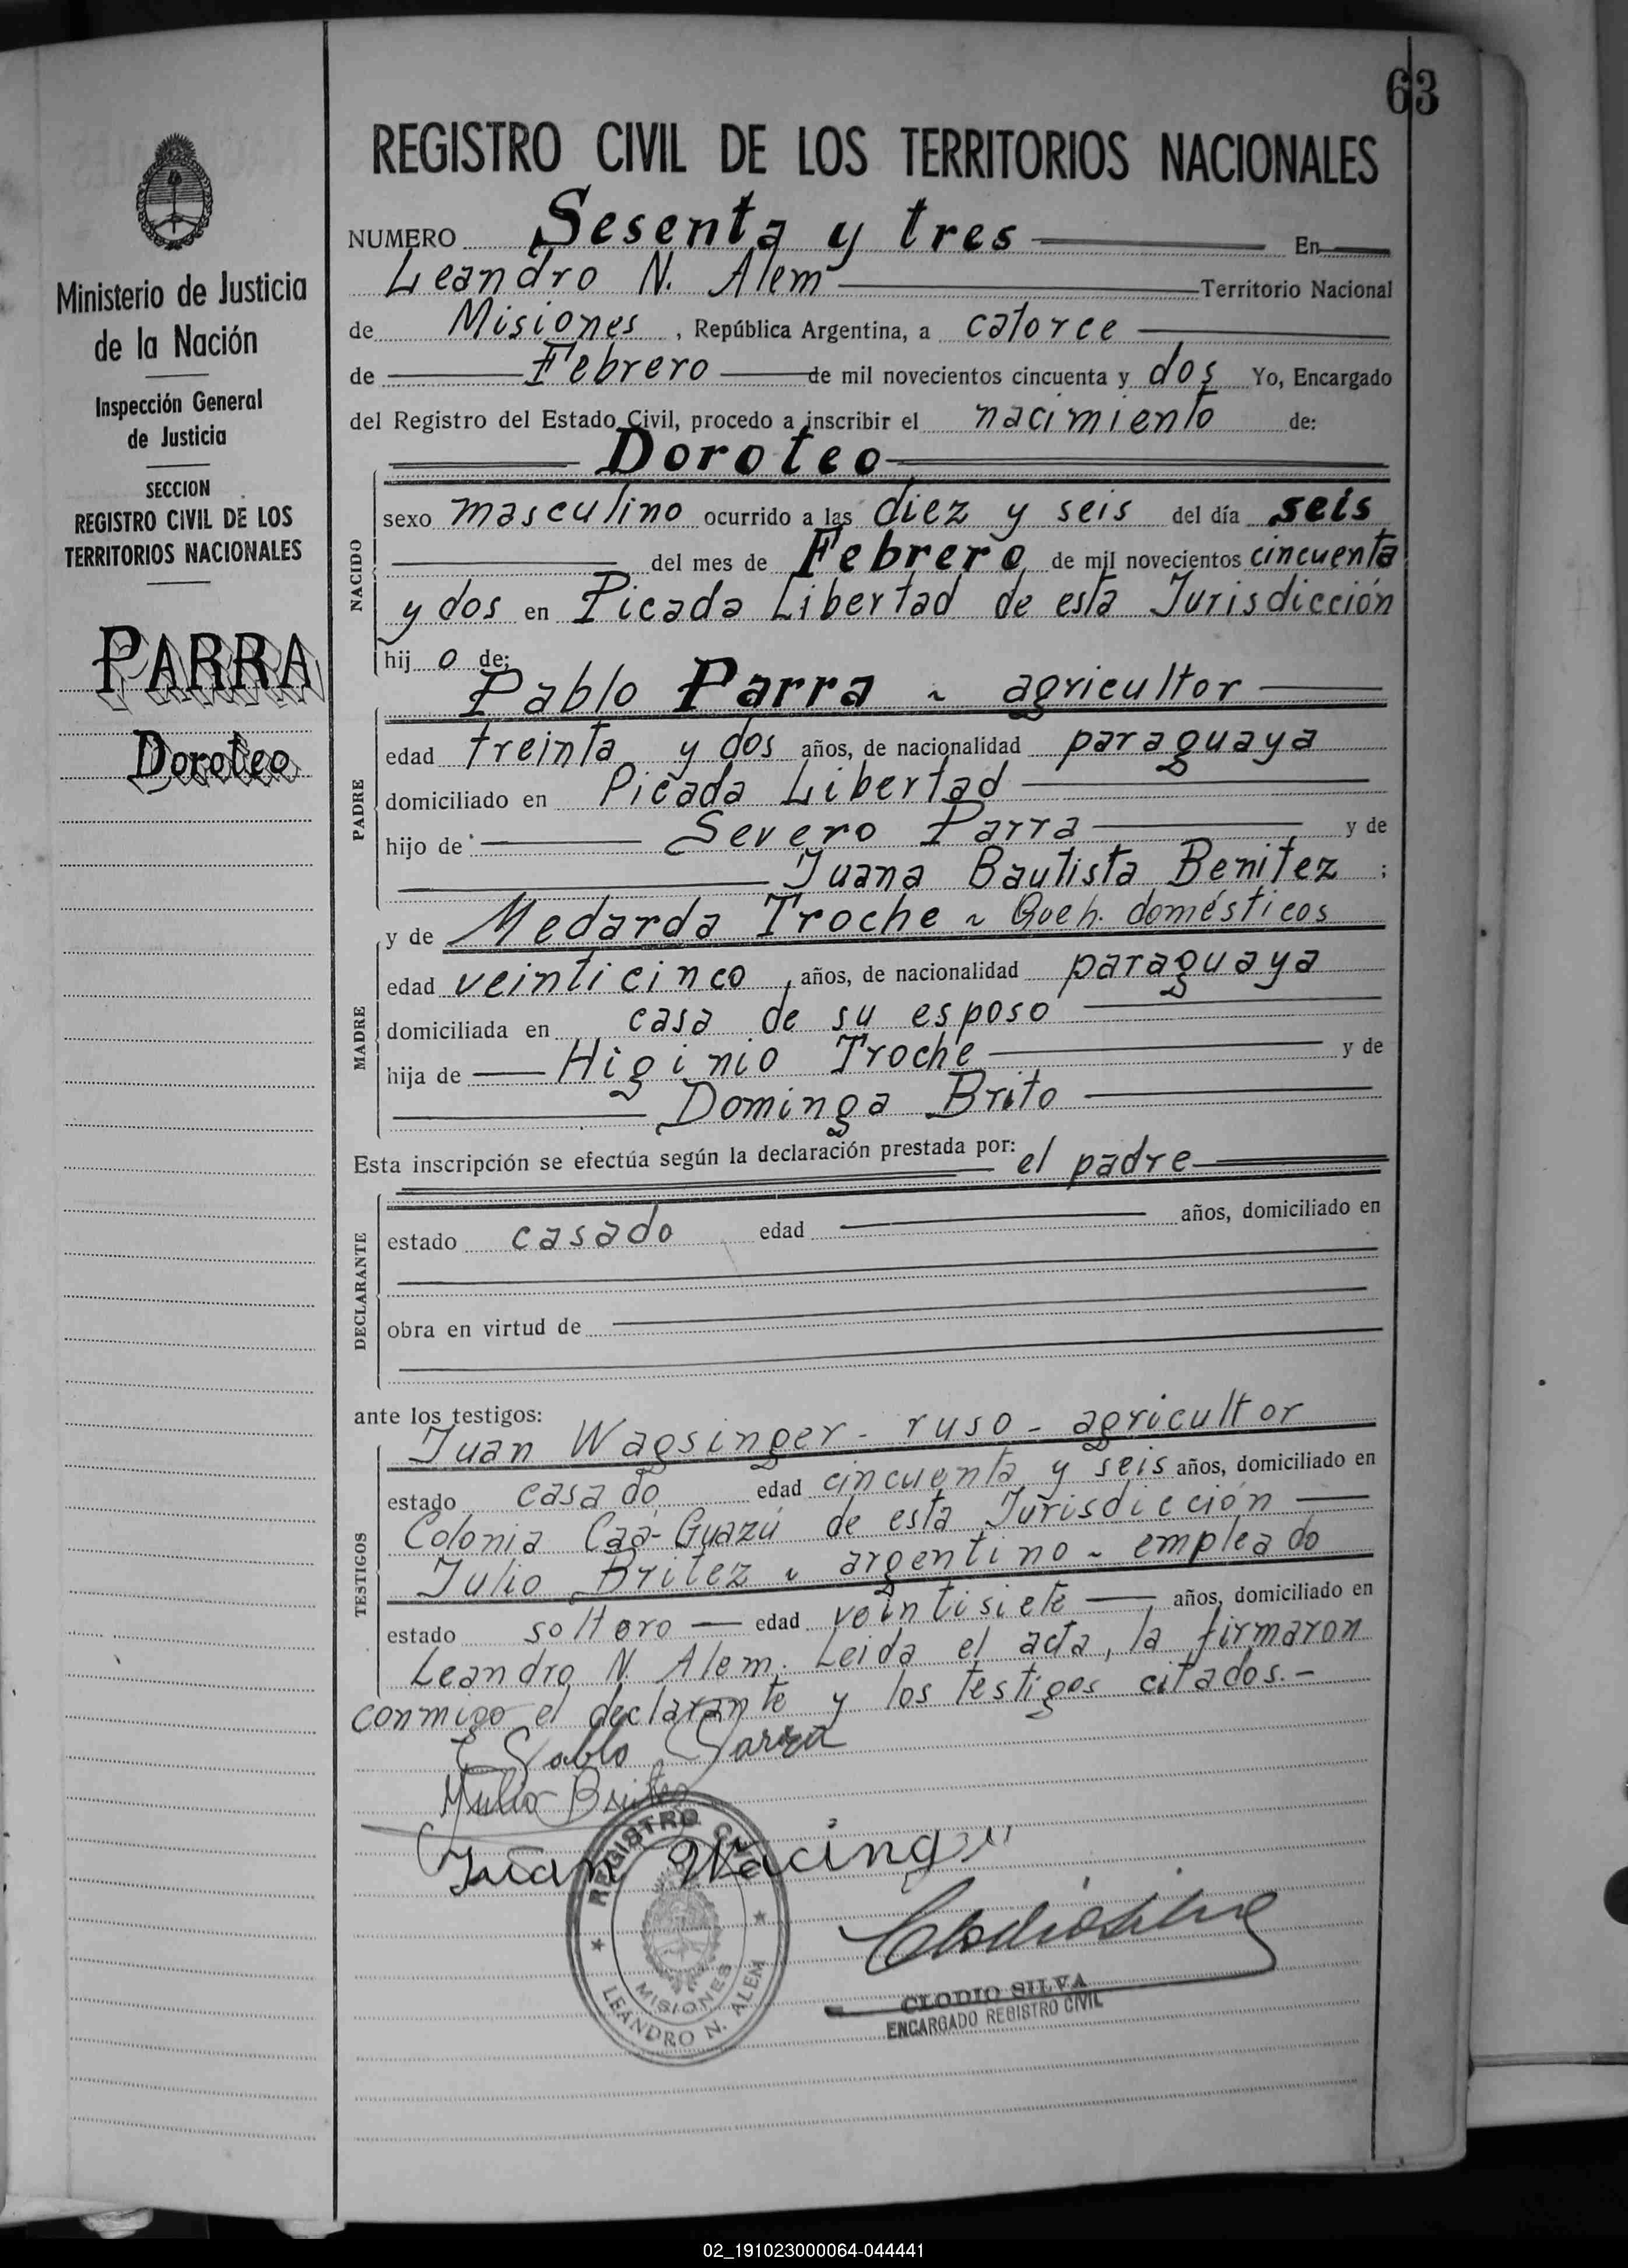 63
REGISTRO CIVIL DE LOS TERRITORIOS NACIONALES
Ministerio de Justicia
de la Nación
Inspección General
de Justicia
SECCION
REGISTRO CIVIL DE LOS
TERRITORIOS NACIONALES
PARRA
Doroteo
NUMERO Sesenta y tres En
Leandro N. Alem Territorio Nacional
de Misiones, República Argentina, a catorce
de Febrero de mil novecientos cincuenta y dos Yo, Encargado
del Registro del Estado Civil, procedo a inscribir el nacimiento de:
Doroteo
NACIDO
sexo masculino ocurrido a las diez y seis del día seis
del mes de Febrero de mil novecientos cincuenta
y dos en Picada Libertad de esta Jurisdicción
hij o de:
Pablo Parra ~ agricultor
PADRE
edad treinta y dos años, de nacionalidad paraguaya
domiciliado en Picada Libertad
hijo de Severo Parra y de
Juana Bautista Benitez ;
y de Medarda Troche ~ Queh. domésticos
MADRE
edad veinticinco, años, de nacionalidad paraguaya
domiciliada en casa de su esposo
hija de Higinio Troche y de
Dominga Brito
Esta inscripción se efectúa según la declaración prestada por: el padre
DECLARANTE
estado casado edad años, domiciliado en
obra en virtud de
ante los testigos:
Juan Wagsinger - ruso - agricultor
TESTIGOS
estado casado edad cincuenta y seis años, domiciliado en
Colonia Caá-Guazú de esta Jurisdicción
Julio Britez ~ argentino ~ empleado
estado soltero edad veintisiete años, domiciliado en
Leandro N. Alem. Leida el acta, la firmaron
conmigo el declarante y los testigos citados.-
Pablo Parra
Julio Britez
Juan
REGISTRO CIVIL
MISIONES
LEANDRO N. ALEM
CLODIO SILVA
ENCARGADO REGISTRO CIVIL
02_191023000064-044441